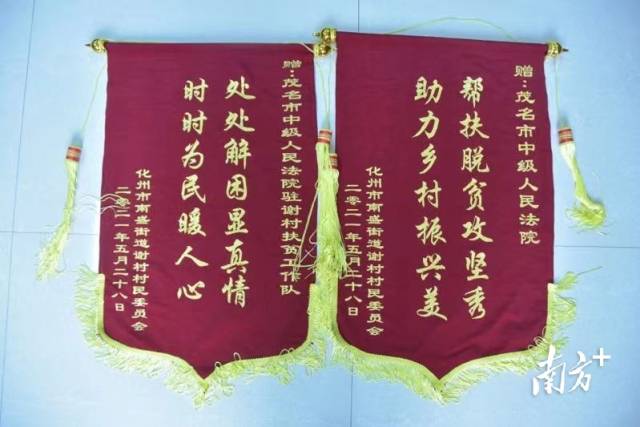 赠:茂名市中级人民法院
帮扶脱贫攻坚秀
助力乡村振兴美
化州市南盛街道谢村村民委员会
二零二一年五月二十八日
赠:茂名市中级人民法院驻谢村扶贫工作队
处处解困显真情
时时为民暖人心
化州市南盛街道谢村村民委员会
二零二一年五月二十八日
南方+